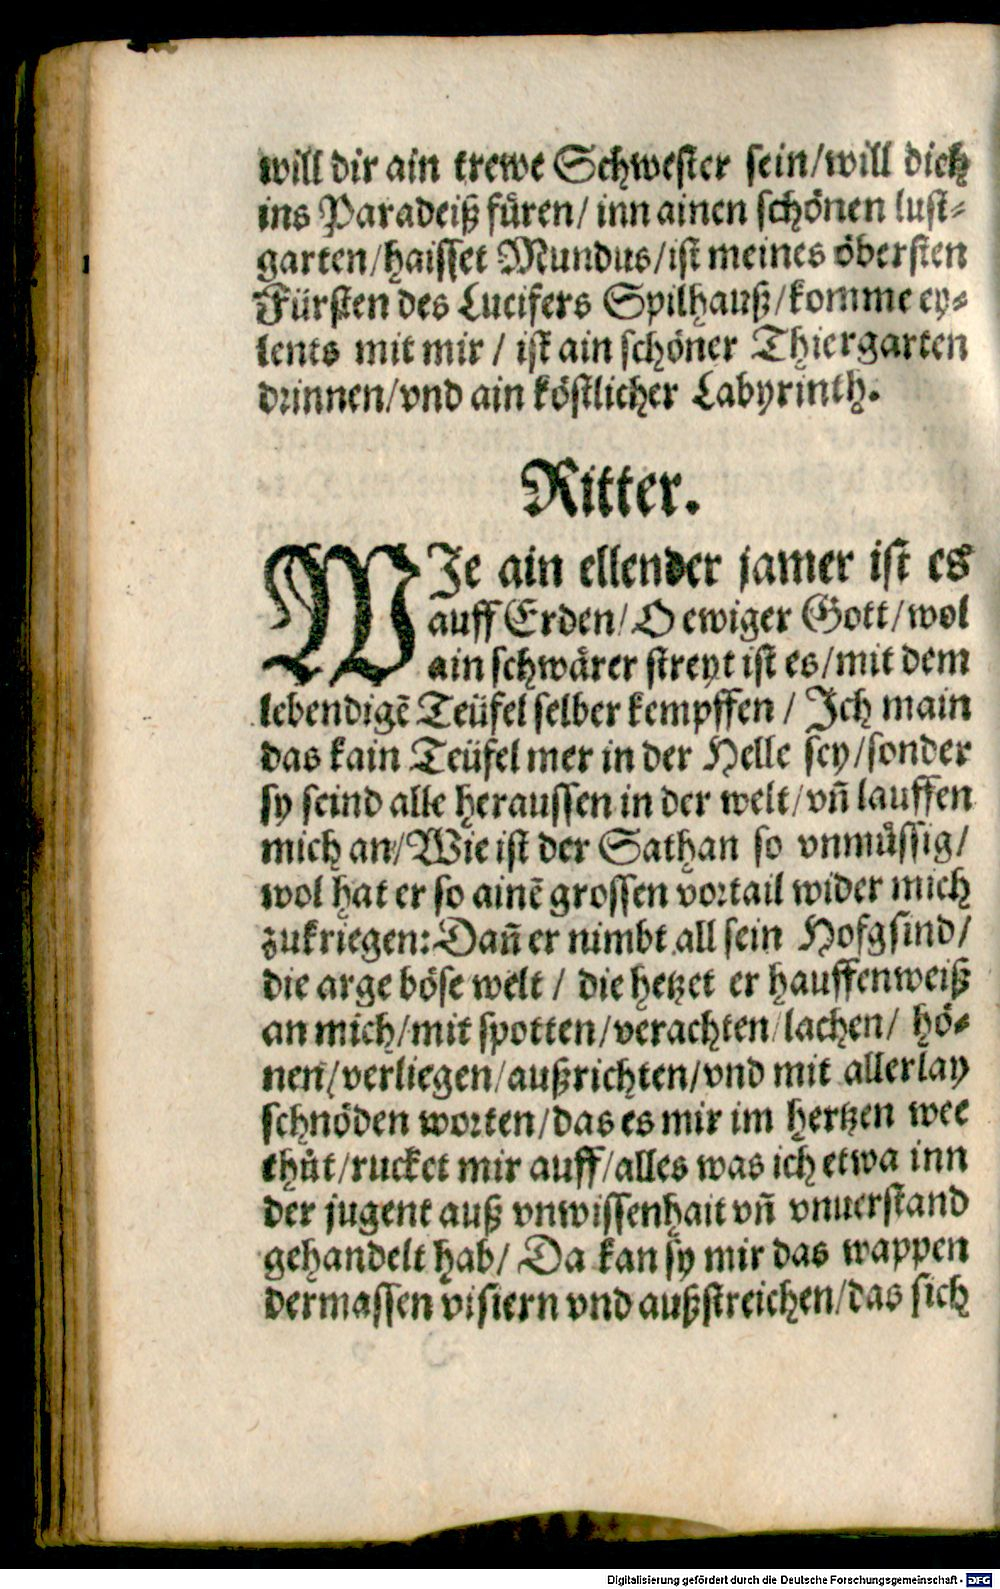 will dir ain trewe Schwester sein/will dich
ins Paradeiß fuͤren/ inn ainen schoͤnen lust⸗
garten/haisset Mundus/ist meines oͤbersten
Fürsten des Lucifers Spilhauß/komme ey⸗
lents mit mir / ist ain schoͤner Thiergarten
drinnen/vnd ain koͤstlicher Labyrinth.
Ritter.
WJe ain ellender jamer ist es
auff Erden/O ewiger Gott/wol
ain schwaͤrer streyt ist es/mit dem
lebendigẽ Teüfel selber kempffen / Jch main
das kain Teüfel mer in der Helle sey/sonder
sy seind alle heraussen in der welt/vñ lauffen
mich an/Wie ist der Sathan so vnmuͤssig/
wol hat er so ainẽ grossen vortail wider mich
zukriegen:Dañ er nimbt all sein Hofgsind/
die arge boͤse welt / die hetzet er hauffenweiß
an mich/mit spotten/verachten/lachen/ hoͤ⸗
nen/verliegen/außrichten/vnd mit allerlay
schnoͤden worten/das es mir im hertzen wee
thuͤt/rucket mir auff/alles was ich etwa inn
der jugent auß vnwissenhait vñ vnuerstand
gehandelt hab/ Da kan sy mir das wappen
dermassen visiern vnd außstreichen/das sich
Digitalisierung gefördert durch die Deutsche Forschungsgemeinschaft - DFG